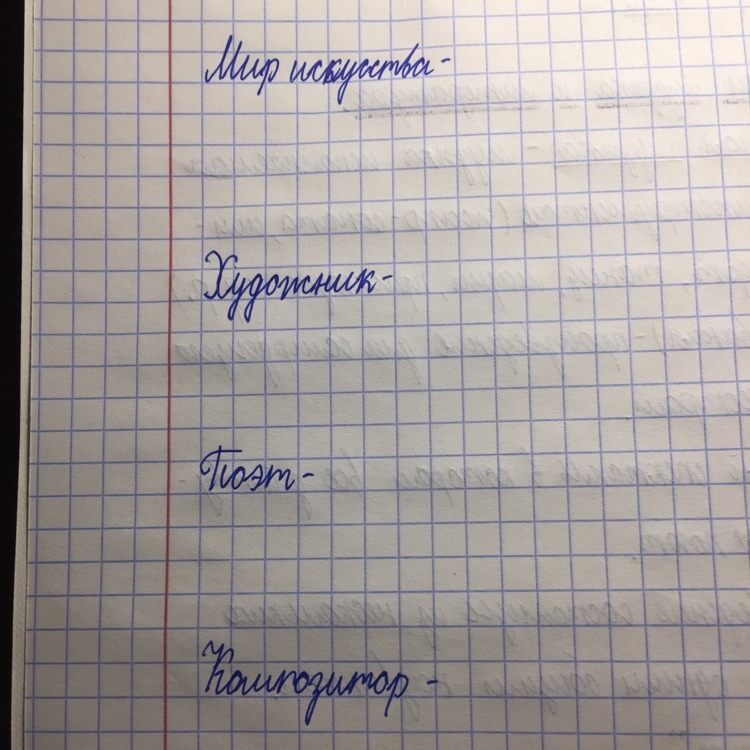 Мир искусства-
Художник-
Поэт-
Композитор -